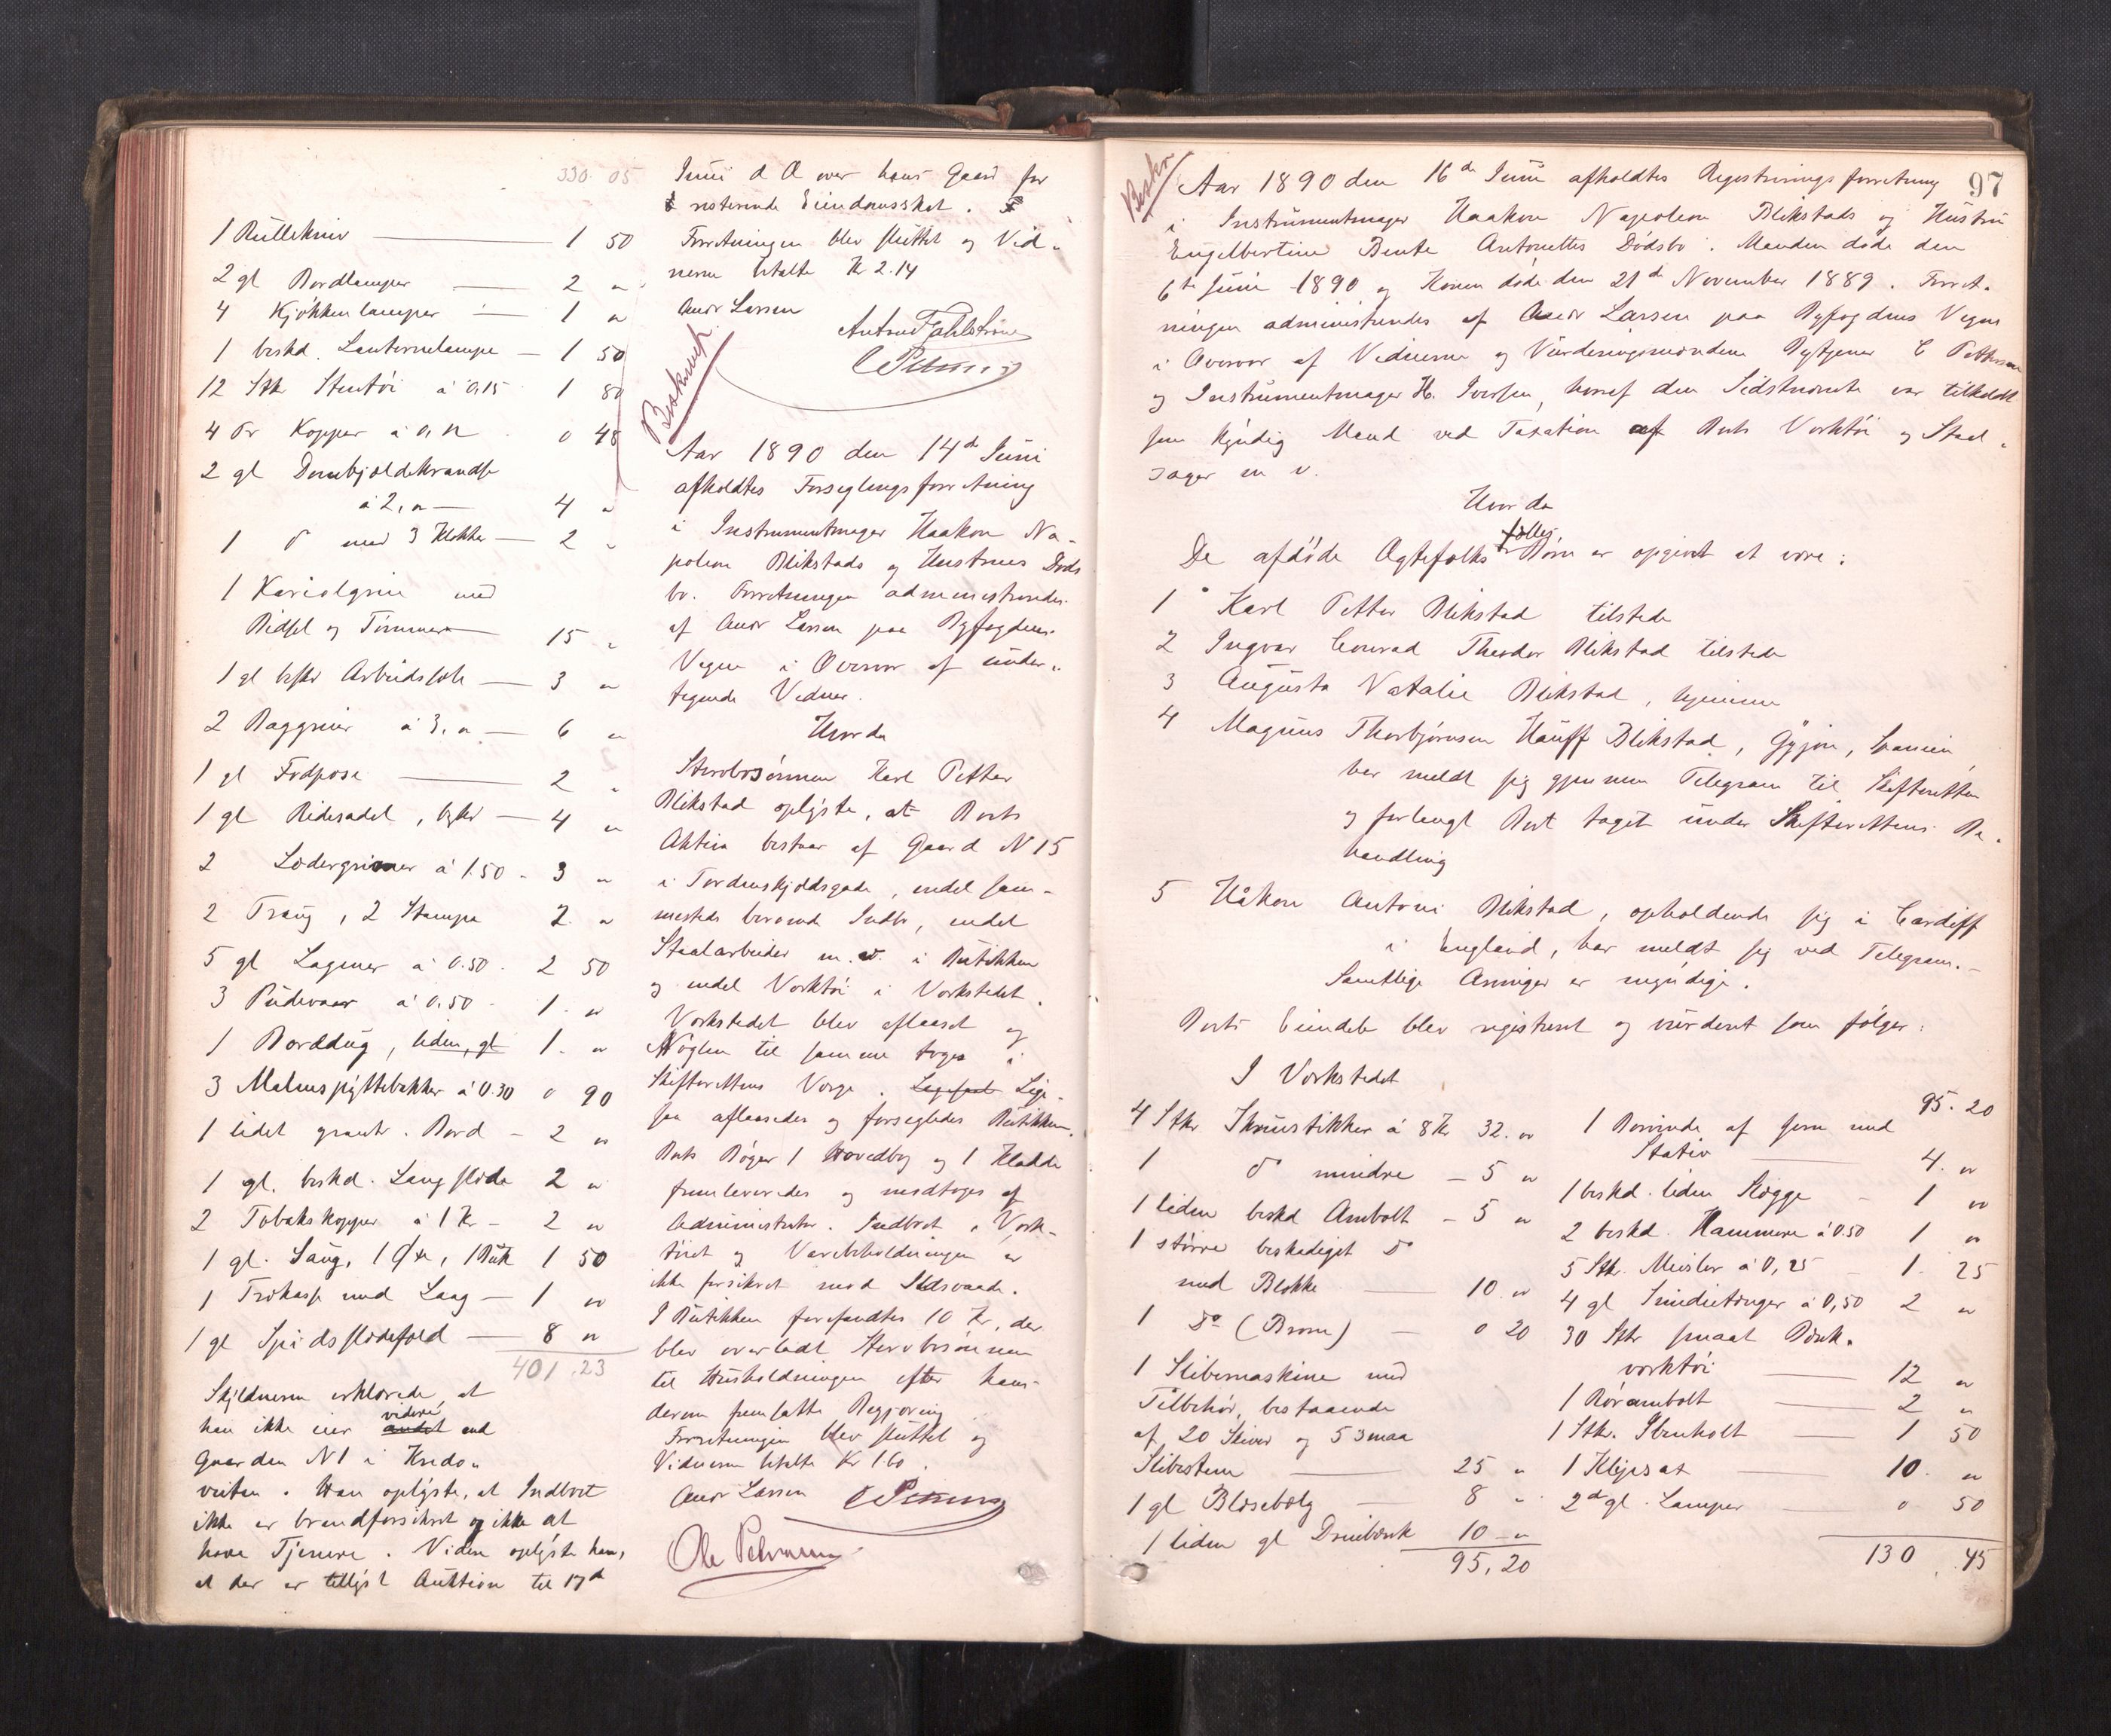 330 05
1 Rullekniv — 1 50
2 gl Bordlamper — 2 "
4 Kjøkkenlamper — 1 "
1 beskd. Lanternelampe — 1 50
12 Stk Stentøi à 0,15 1 80
4 Pr Kopper à 0,12 0 48
2 gl Dombjeldekrandse
à 2, " — 4 "
1 do med 3 Klokker — 2 "
1 Kariolgrime med
Bidsel og Tømmer — 15 "
1 gl beskd Arbeidssele — 3 "
2 Baggrimer à 3, " — 6 "
1 gl Fodpose — 2 "
1 gl Ridesadel, beskd — 4 "
2 Lædergrimer à 1.50 - 3 "
2 Traug, 2 Stampe 2 "
5 gl Lagener à 0.50 - 2 50
3 Pudevaar à 0,50 - 1. "
1 Bordдug, liden, gl 1. "
3 Malmspyttebakker à 0.30 0 90
1 lidet Bord - 2 "
1 gl. beskd. Langslæde 2 "
2 Tobakskopper à 1 Kr - 2 "
1 gl. Saug, 1 Øxe, 1 1 50
1 Trækasse med Laag — 1 "
1 gl Spidsslædefæld — 8 "
401.23
Skyldneren erklærede, at
han ikke eier andet videre end
Gaarden N 1 i
. Han oplyste, at Indboet
ikke er brandforsikret og ikke at
have Tjenere. Videre oplyste han,
at der er tillyst Auktion til 17de
Juni d A over hans Gaard for
resterende Eiendomsskat.
Forretningen blev sluttet og Vid-
nerne betalte Kr 2.14
Andr Larsen
Anton Fahlstrøm
Beskrevet
Aar 1890 den 14de Juni
afholdtes Forseglingsforretning
i Instrumentmager Haakon Na-
poleon Blikstads og Hustrues Døds
bo. Forretningen administreredes
af Andr Larsen paa Byfogdens
Vegne i Overvær af under-
tegnede Vidner.
Hvorda
Stervbosønnen Karl Petter
Blikstad oplyste, at Boets
Aktiva bestaar af Gaard N 15
i Tordenskjoldsgade, endel sam-
mesteds beroende Indbo, endel
Staalarbeider m. v. i Butikken
og endel Værktøi i Værkstedet.
Værkstedet blev aflaaset og
Nøglen til samme toges i
Skifterettens Værge. Lige-
saa aflaasedes og forsegledes Butikken.
Boets Bøger 1 Hovedbog og 1 Kladde
fremleveredes og modtoges af
Administrator. Indboet, Værk-
tøiet og Varebeholdningen er
ikke forsikret mod Ildsvaade.
I Butikken forefandtes 10 Kr, der
blev overladt Stervbosønnen
til Husholdningen efter hans
derom fremsatte Begjæring
Forretningen blev sluttet og
Vidnerne betalte Kr 1.60.
Andr Larsen
Ole Pettersen
97
Beskr
Aar 1890 den 16de Juni afholdtes Registreringsforretning
i Instrumentmager Haakon Napoleon Blikstads og Hustru
Engelbertine Bente Antonettes Dødsbo. Manden døde den
6te Juni 1890 og Konen døde den 21de November 1889. Forret-
ningen administreredes af Andr Larsen paa Byfogdens Vegne
i Overvær af Vidnerne og Vurderingsmændene Bytjener C Pettersen
og Instrumentmager H. Iversen, hvoraf den Sidstnævnte var tilkaldt
som kyndig Mand ved Taxation af Boets Værktøi og Staal-
sager m v.
Hvorda
De afdøde Ægtefolks fælles Børn er opgivet at være:
1 Karl Petter Blikstad tilstede
2 Ingvar Conrad Theodor Blikstad tilstede
3 Augusta Natalie Blikstad, hjemme
4 Magnus Thorbjørnsen Hauff Blikstad, Gyjon, Spanien,
har meldt sig gjennem Telegram til Skifteretten
og forlangt Boet taget under Skifterettens Be-
handling
5 Håkon Antoni Blikstad, opholdende sig i Cardiff
i England, har meldt sig ved Telegram. -
Samtlige Arvinger er myndige.
Boets Eiendele blev registreret og vurderet som følger:
I Værkstedet
4 Stkr Skruestikker à 8 Kr 32. "
1 do mindre — 5 "
1 liden beskd Ambolt - 5 "
1 større beskadiget do
med Blokke — 10 "
1 do (Brom) — 0 20
1 Slibemaskine med
Tilbehør, bestaaende
af 20 Skiver og 5 smaa
Slibestene — 25 "
1 gl Blæsebælg — 8 "
1 liden gl Dreiebænk 10 - "
95,20
95.20
1 Borvinde af Jern med
Stativ — 4. "
1 beskd. liden Slægge - 1 "
2 beskd. Hammere à 0.50 1 "
5 Stk. Meisler à 0,25 - 1. 25
4 gl Smedietænger à 0,50 2 "
30 Stkr smaat Bænk-
værktøi — 12 "
1 Rørambolt — 2 "
1 Stk. Ibenholt — 1 50
1 — 10 "
2 gl. Lamper — 0 50
130.45